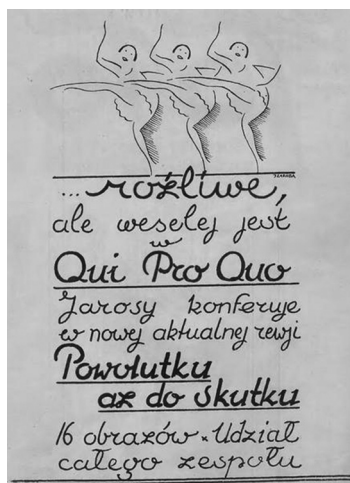 ... rożliwe,
ale weselej jest
w
Qui Pro Quo
Jarosy konferuje
w nowej aktualnej rewji
Powolutku
aż do skutku
16 obrazów × Udział
całego zespołu